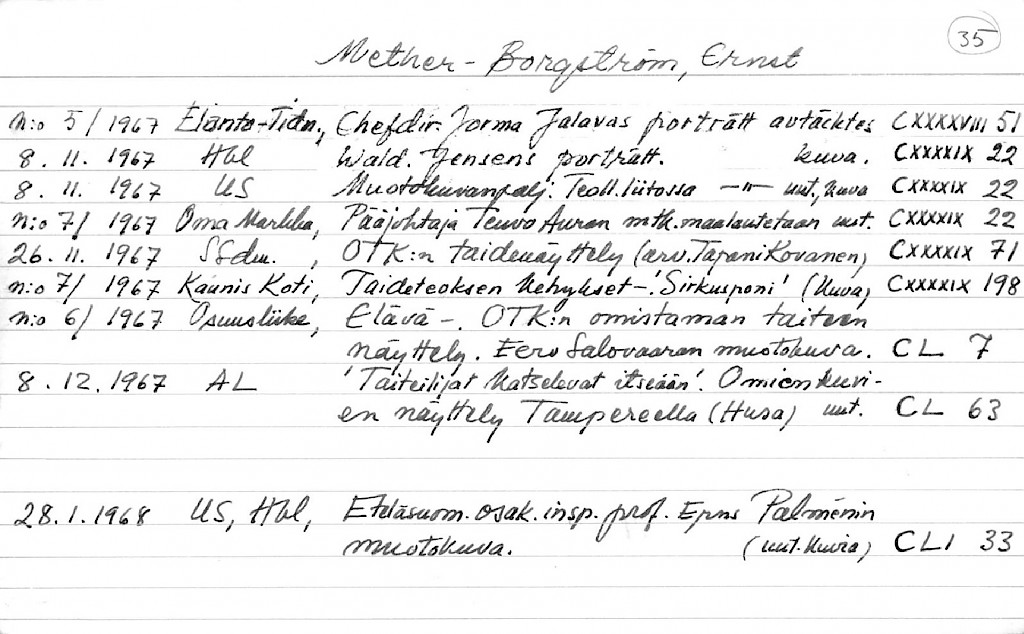 35
Mether-Borgström, Ernst
n:o 5/1967 Elanto-Tidn., Chefdir. Jorma Jalavas porträtt avtäcktes CXXXXVIII 51
8.11.1967 Hbl Wald. Jensens porträtt. kuva. CXXXXIX 22
8.11.1967 US Muotokuvanpalj. Teoll.liitossa —"— uut., kuva CXXXXIX 22
n:o 7/1967 Oma Markka, Pääjohtaja Teuvo Auran mtk. maalautetaan uut. CXXXXIX 22
26.11.1967 SSdm. , OTK:n taidenäyttely (arv. Tapani Kovanen) CXXXXIX 71
n:o 7/1967 Kaunis Koti, Taideteoksen kehykset-. 'Sirkusponi' (kuva) CXXXXIX 198
n:o 6/1967 Osuusliike, Elävä-. OTK:n omistaman taiteen
näyttely. Eero Salovaaran muotokuva. CL 7
8.12.1967 AL 'Taiteilijat katselevat itseään'. Omien kuvi-
en näyttely Tampereella (Husa) uut. CL 63
28.1.1968 US, Hbl, Eteläsuom. osak. insp. prof. Palménin
muotokuva. (uut. kuvia) CLI 33